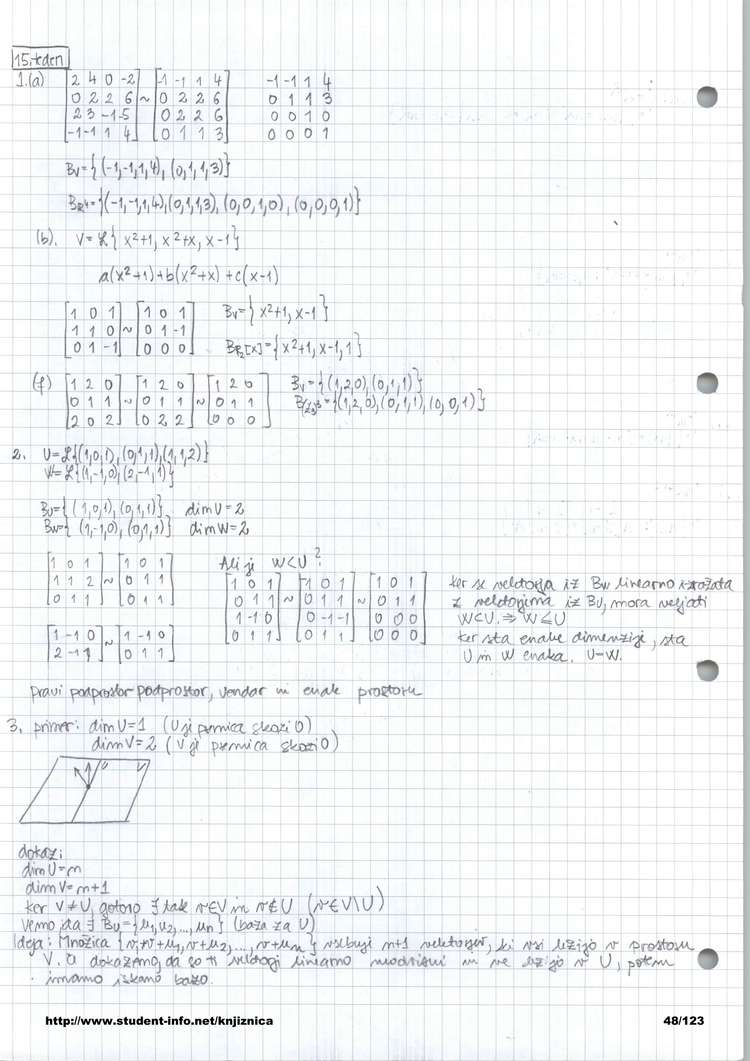 15. teden
1.(a) [2 4 0 -2] [-1 -1 1 4] -1 -1 1 4
[0 2 2 6] ~ [0 2 2 6] 0 1 1 3
[2 3 -1 -5] [0 2 2 6] 0 0 1 0
[-1 -1 1 4] [0 1 1 3] 0 0 0 1
Bv={(-1,-1,1,4), (0,1,1,3)}
BR4={(-1,-1,1,4),(0,1,1,3), (0,0,1,0), (0,0,0,1)}
(b). V=L{x²+1, x²+x, x-1}
a(x²+1)+b(x²+x)+c(x-1)
[1 0 1] [1 0 1] Bv={x²+1, x-1}
[1 1 0] ~ [0 1 -1]
[0 1 -1] [0 0 0] BR2[x]={x²+1, x-1, 1}
(f) [1 2 0] [1 2 0] [1 2 0] Bv={(1,2,0),(0,1,1)}
[0 1 1] ~ [0 1 1] ~ [0 1 1] B(Z3)3={(1,2,0),(0,1,1),(0,0,1)}
[2 0 2] [0 2 2] [0 0 0]
2. U=L{(1,0,1),(0,1,1),(1,1,2)}
W=L{(1,-1,0),(2,-1,1)}
BU={(1,0,1),(0,1,1)} dim U=2
BW={(1,-1,0),(0,1,1)} dim W=2
Ali je W<U?
[1 0 1] [1 0 1]
[1 1 2] ~ [0 1 1]
[0 1 1] [0 1 1]
[1 -1 0] ~ [1 -1 0]
[2 -1 1] [0 1 1]
[1 0 1] [1 0 1] [1 0 1]
[0 1 1] ~ [0 1 1] ~ [0 1 1]
[1 -1 0] [0 -1 -1] [0 0 0]
[0 1 1] [0 1 1] [0 0 0]
ker se vektorja iz BW linearno izražata
z vektorjima iz BU, mora veljati
W⊂U. ⇒ W≤U
ker sta enake dimenzije, sta
U in W enaka. U=W.
pravi podprostor podprostor, vendar ni enak prostoru
3. primer: dim U=1 (U je premica skozi 0)
dim V=2 (V je premica skozi 0)
U V
dokaz:
dim U=n
dim V=n+1
ker V≠U, gotovo ∃ tak v∈V in v∉U (v∈V\U)
Vemo, da ∃ BU={u1,u2,...,un} (baza za U)
Ideja: Množica {v,v+u1,v+u2,...,v+un} vsebuje n+1 vektorjev, ki vsi ležijo v prostoru
V. Če dokažemo, da so ti vektorji linearno neodvisni in ne ležijo v U, potem
imamo iskano bazo.
http://www.student-info.net/knjiznica
48/123